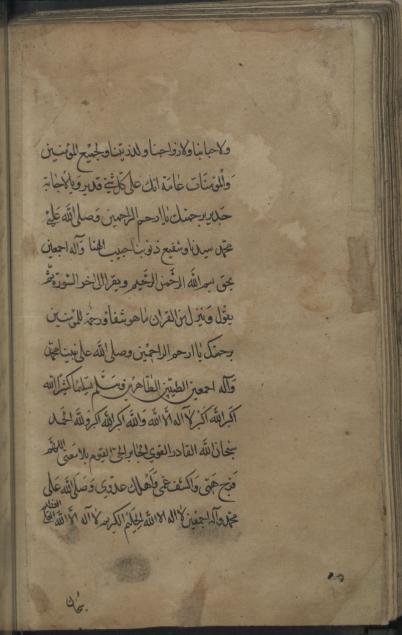 ولاحبابنا ولازواجنا ولذريتنا ولجميع المؤمنين
والمؤمنات عامة انك على كل شئ قدير وبالاجابة
جدير برحمتك يا ارحم الراحمين وصلى الله على
محمد سيدنا وشفيع ذنوبنا حبيب الهنا وآله اجمعين
بحق بسم الله الرحمن الرحيم ويقرا الى اخر السورة ثم
يقول وننزل من القران ما هو شفاء ورحمة للمؤمنين
برحمتك يا ارحم الراحمين وصلى الله على نبينا محمد
وآله اجمعين الطيبين الطاهرين وسلم تسليما كثيرا الله
اكبر الله اكبر لا اله الا الله والله اكبر الله اكبر ولله الحمد
سبحان الله القادر القوى الجبار الحى القيوم بلا معين اللهم
فرج همى واكشف غمى واهلك عدوى وصلى الله على
محمد وآله اجمعين لا اله الا الله الحليم الكريم لا اله الا الله
سبحان